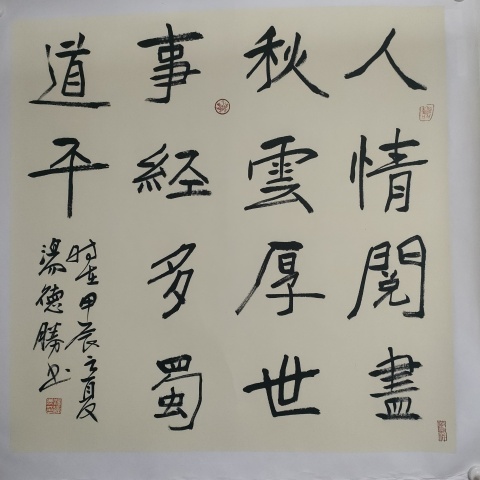 人情閱盡
秋雲厚世
事經多蜀
道平
時在甲辰之夏
湯德勝书